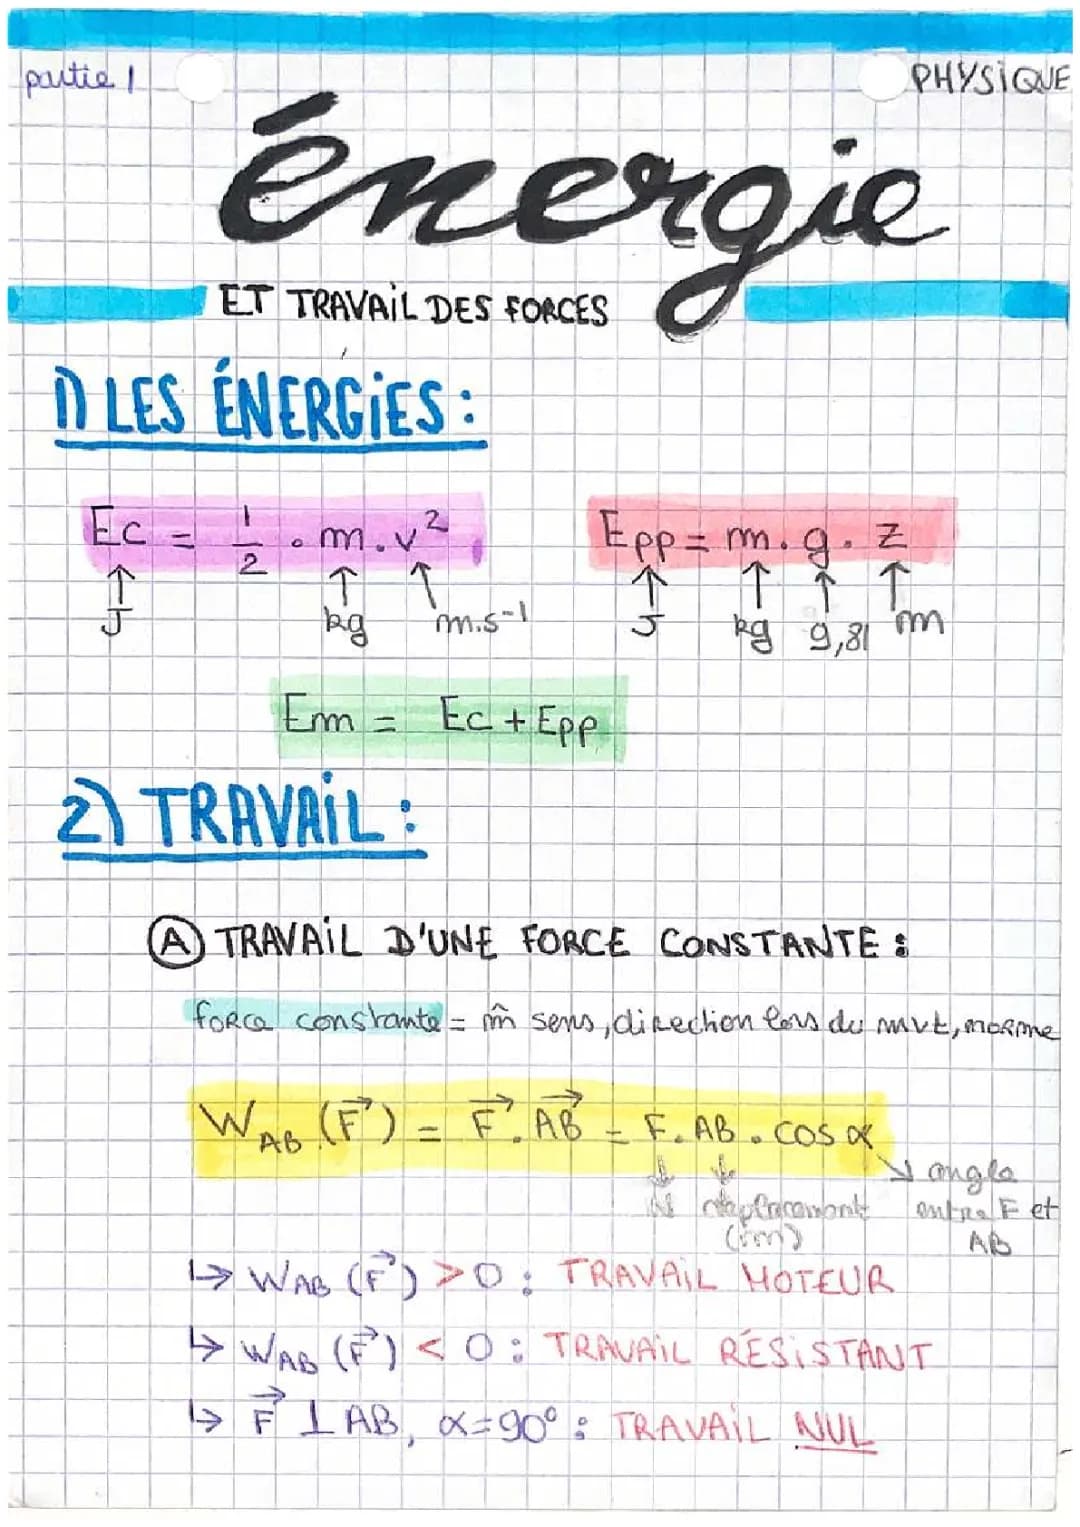 partie 1
PHYSIQUE
énergie
ET TRAVAIL DES FORCES
1) LES ÉNERGIES :
Ec = 1/2 . m . v²
J kg m.s⁻¹
Epp = m . g . z
J kg 9,81 m
Em = Ec + Epp
2) TRAVAIL :
Ⓐ TRAVAIL D'UNE FORCE CONSTANTE :
force constante = m̂ sens, direction lors du mvt, norme
W_AB (F⃗) = F⃗ . AB⃗ = F . AB . cos α
↓ ↓ ↘ angle
N déplacement entre F et
(m) AB
↳ W_AB (F⃗) > 0 : TRAVAIL MOTEUR
↳ W_AB (F⃗) < 0 : TRAVAIL RÉSISTANT
↳ F⃗ ⊥ AB, α = 90° : TRAVAIL NUL